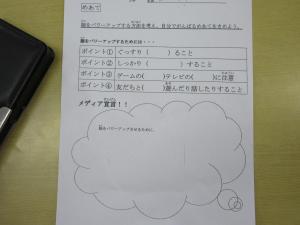 めあて
脳をパワーアップする方法を考え、自分でがんばるめあてをきめよう。
脳をパワーアップするためには・・・
ポイント① ぐっすり（　　　　）ること
ポイント② しっかり（　　　　）すること
ポイント③ ゲームの(　　　)テレビの(　　　)に注意
ポイント④ 友だちと(　　　)遊んだり話したりすること
メディア宣言！！
脳をパワーアップさせるために、